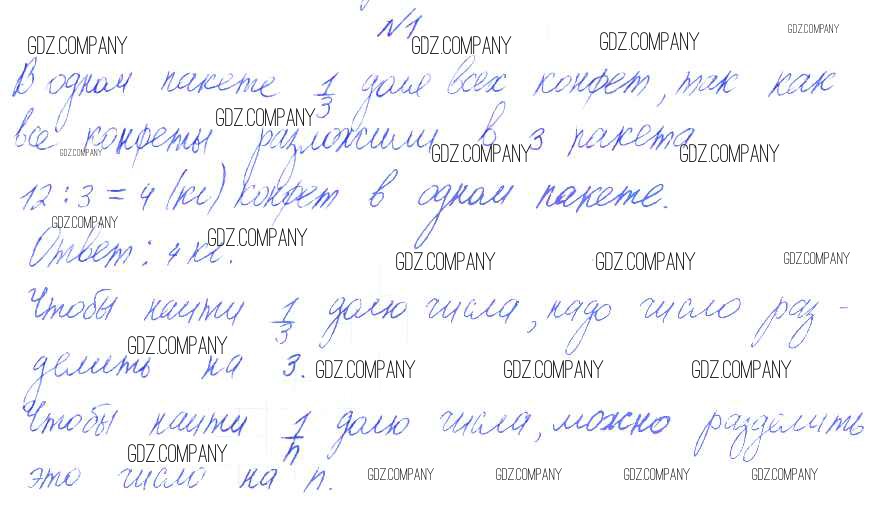 №1
GDZ.COMPANY GDZ.COMPANY GDZ.COMPANY GDZ.COMPANY
В одном пакете 1/3 доля всех конфет, так как
GDZ.COMPANY
все конфеты разложили в 3 пакета
GDZ.COMPANY GDZ.COMPANY GDZ.COMPANY
12 : 3 = 4 (кг) конфет в одном пакете.
GDZ.COMPANY GDZ.COMPANY
Ответ: 4 кг.
GDZ.COMPANY GDZ.COMPANY GDZ.COMPANY
Чтобы найти 1/3 долю числа, надо число раз-
GDZ.COMPANY
делить на 3.
GDZ.COMPANY GDZ.COMPANY GDZ.COMPANY
Чтобы найти 1/n долю числа, можно разделить
GDZ.COMPANY
это число на n.
GDZ.COMPANY GDZ.COMPANY GDZ.COMPANY GDZ.COMPANY